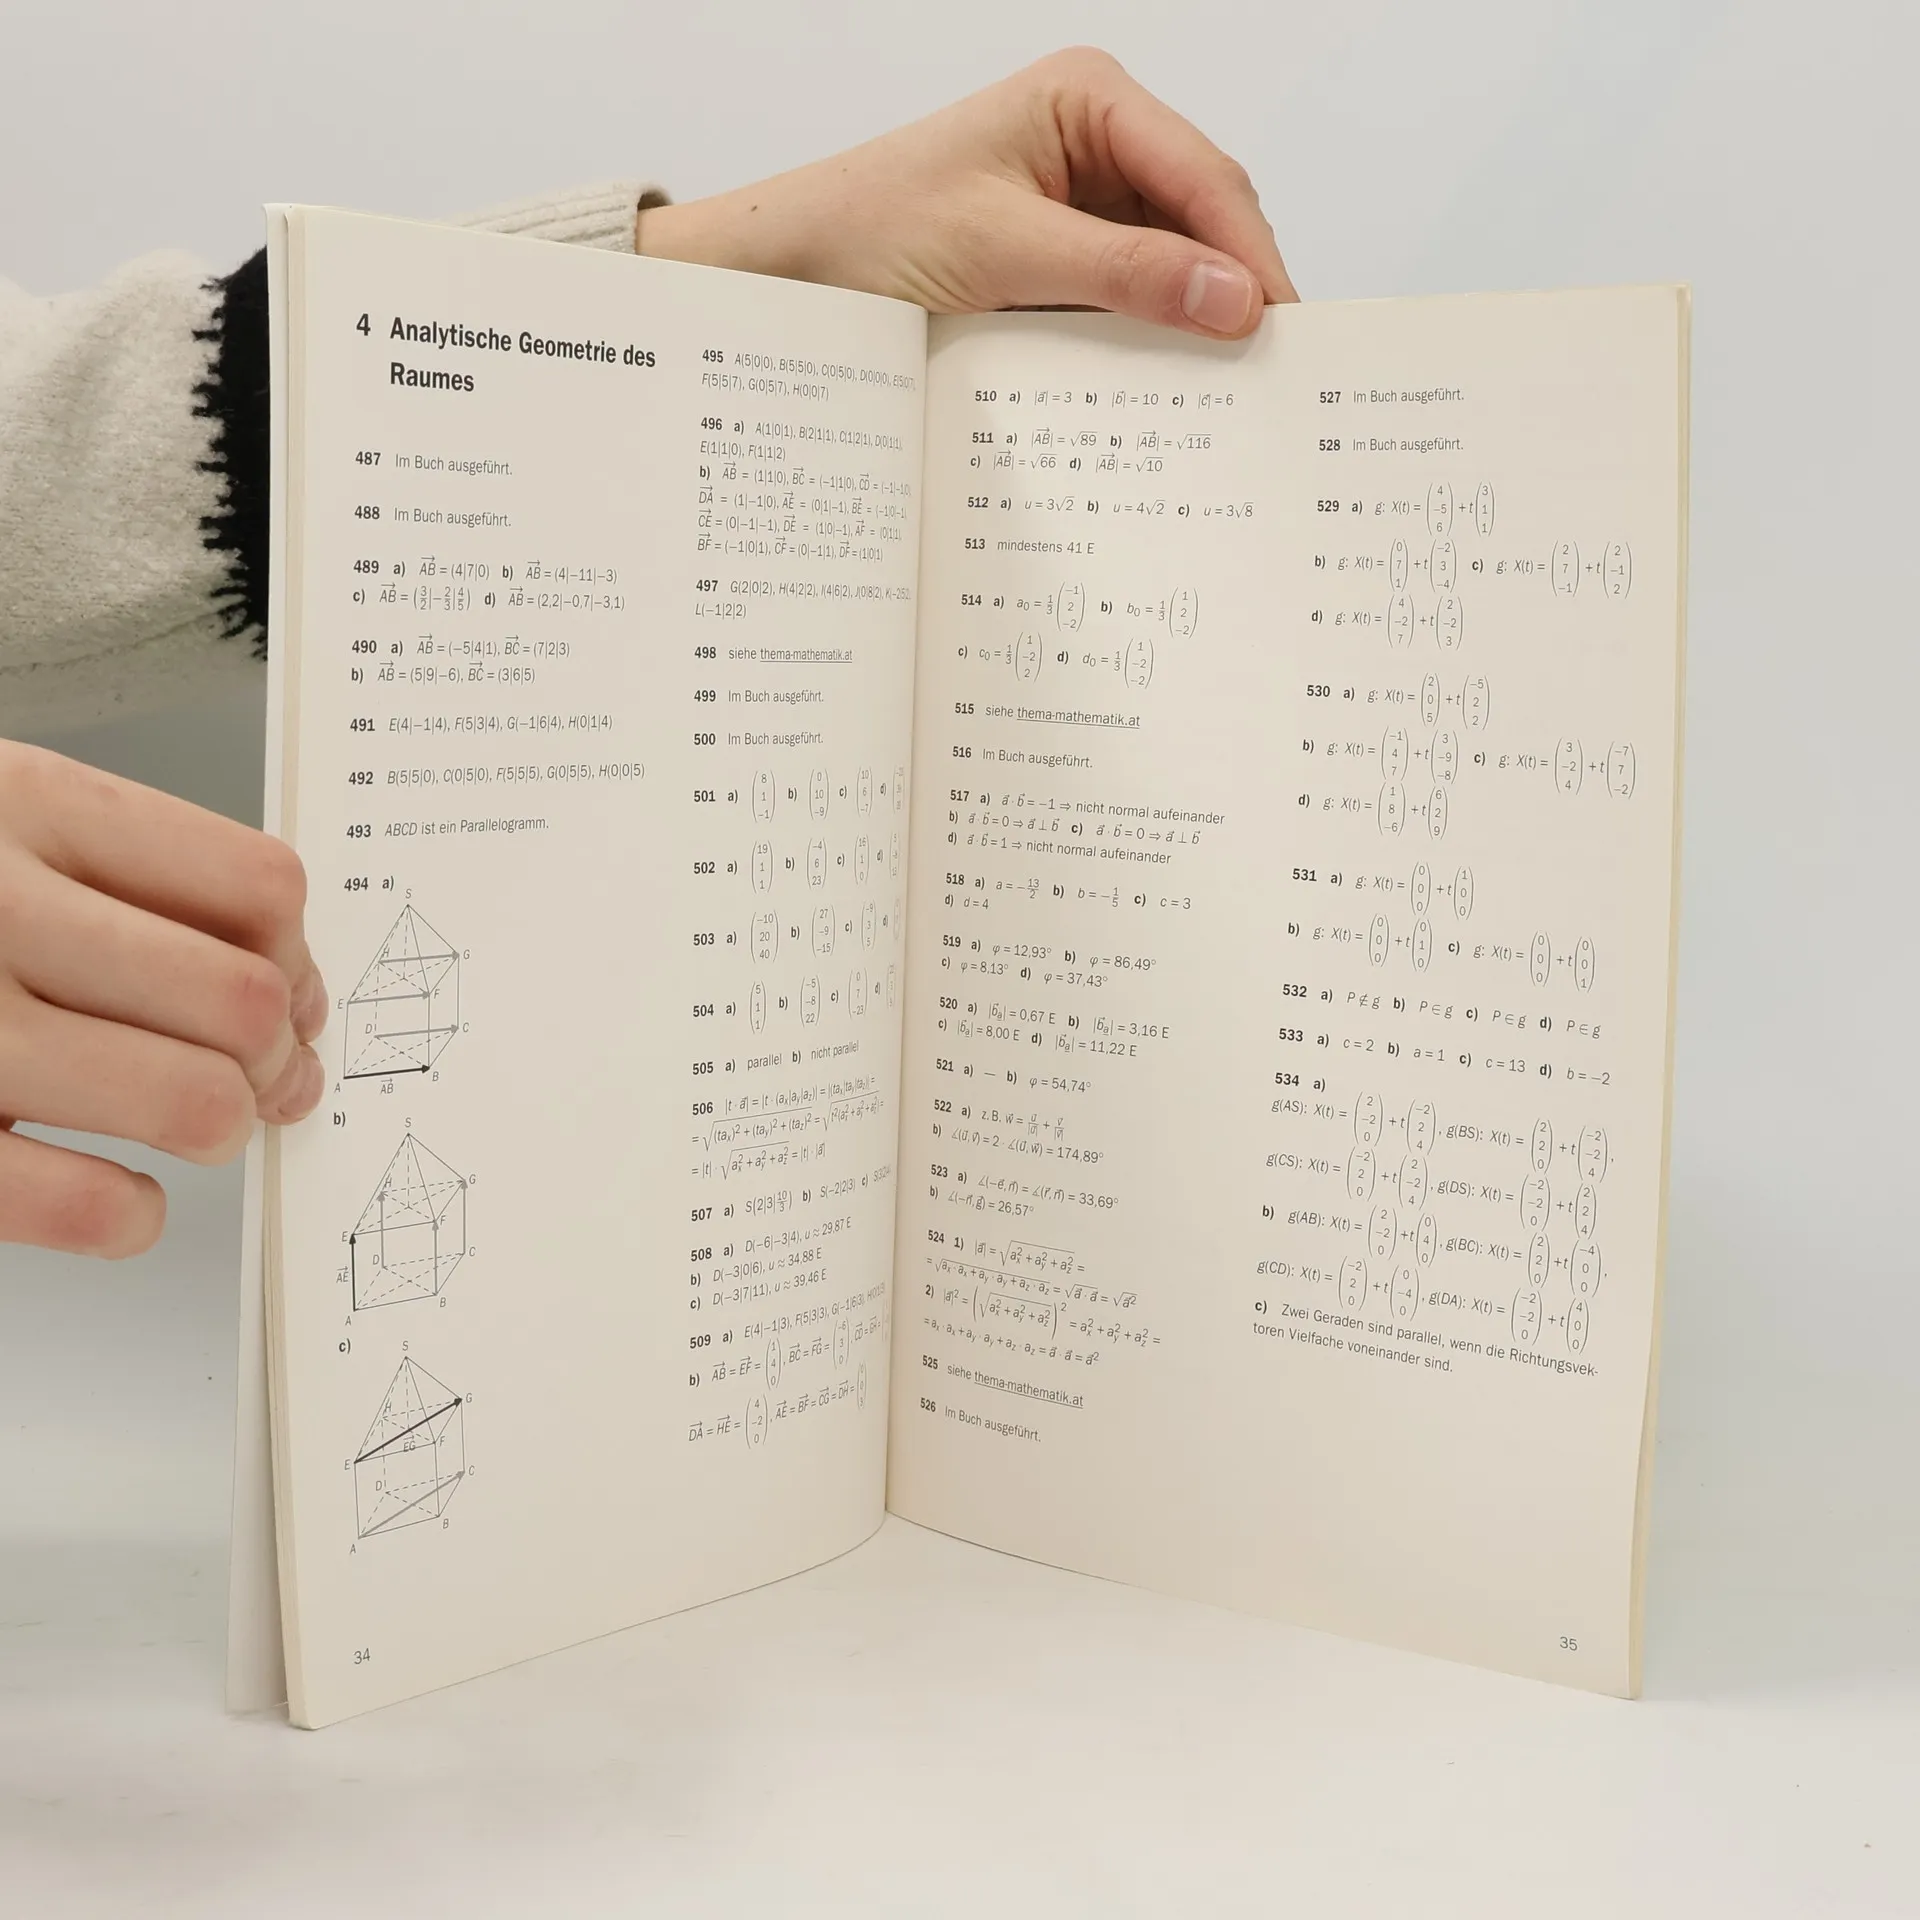 4 Analytische Geometrie des
Raumes
487 Im Buch ausgeführt.
488 Im Buch ausgeführt.
489 a) AB⃗ = (4|7|0) b) AB⃗ = (4|−11|−3)
c) AB⃗ = (3/2|−2/3|4/5) d) AB⃗ = (2,2|−0,7|−3,1)
490 a) AB⃗ = (−5|4|1), BC⃗ = (7|2|3)
b) AB⃗ = (5|9|−6), BC⃗ = (3|6|5)
491 E(4|−1|4), F(5|3|4), G(−1|6|4), H(0|1|4)
492 B(5|5|0), C(0|5|0), F(5|5|5), G(0|5|5), H(0|0|5)
493 ABCD ist ein Parallelogramm.
494 a)
S
H G
E F
D C
A AB⃗ B
b)
S
H G
E F
AE⃗ D C
A B
c)
S
H G
E EG⃗ F
D C
A B
34
495 A(5|0|0), B(5|5|0), C(0|5|0), D(0|0|0), E(5|0|7),
F(5|5|7), G(0|5|7), H(0|0|7)
496 a) A(1|0|1), B(2|1|1), C(1|2|1), D(0|1|1),
E(1|1|0), F(1|1|2)
b) AB⃗ = (1|1|0), BC⃗ = (−1|1|0), CD⃗ = (−1|−1|0),
DA⃗ = (1|−1|0), AE⃗ = (0|1|−1), BE⃗ = (−1|0|−1),
CE⃗ = (0|−1|−1), DE⃗ = (1|0|−1), AF⃗ = (0|1|1),
BF⃗ = (−1|0|1), CF⃗ = (0|−1|1), DF⃗ = (1|0|1)
497 G(2|0|2), H(4|2|2), I(4|6|2), J(0|8|2), K(−2|6|2),
L(−1|2|2)
498 siehe thema-mathematik.at
499 Im Buch ausgeführt.
500 Im Buch ausgeführt.
501 a) (8 1 −1) b) (0 10 −9) c) (10 6 −7) d)
502 a) (19 1 1) b) (−4 6 23) c) (16 1 0) d)
503 a) (−10 20 40) b) (27 −9 −15) c) (−9 3 5) d)
504 a) (5 1 1) b) (−5 −8 22) c) (0 7 −23) d)
505 a) parallel b) nicht parallel
506 |t · a⃗| = |t · (aₓ|a_y|a_z)| = |(taₓ|ta_y|ta_z)| =
= √((taₓ)² + (ta_y)² + (ta_z)²) = √(t²(aₓ² + a_y² + a_z²)) =
= |t| · √(aₓ² + a_y² + a_z²) = |t| · |a⃗|
507 a) S(2|3|10/3) b) S(−2|2|3) c)
508 a) D(−6|−3|4), u ≈ 29,87 E
b) D(−3|0|6), u ≈ 34,88 E
c) D(−3|7|11), u ≈ 39,46 E
509 a) E(4|−1|3), F(5|3|3), G(−1|6|3),
b) AB⃗ = EF⃗ = (1 4 0), BC⃗ = FG⃗ = (−6 3 0),
DA⃗ = HE⃗ = (4 −2 0), AE⃗ = BF⃗ = CG⃗ = DH⃗ =
510 a) |a⃗| = 3 b) |b⃗| = 10 c) |c⃗| = 6
511 a) |AB⃗| = √89 b) |AB⃗| = √116
c) |AB⃗| = √66 d) |AB⃗| = √10
512 a) u = 3√2 b) u = 4√2 c) u = 3√8
513 mindestens 41 E
514 a) a₀ = 1/3 (−1 2 −2) b) b₀ = 1/3 (1 2 −2)
c) c₀ = 1/3 (1 −2 2) d) d₀ = 1/3 (1 −2 −2)
515 siehe thema-mathematik.at
516 Im Buch ausgeführt.
517 a) a⃗ · b⃗ = −1 ⇒ nicht normal aufeinander
b) a⃗ · b⃗ = 0 ⇒ a⃗ ⊥ b⃗ c) a⃗ · b⃗ = 0 ⇒ a⃗ ⊥ b⃗
d) a⃗ · b⃗ = 1 ⇒ nicht normal aufeinander
518 a) a = −13/2 b) b = −1/5 c) c = 3
d) d = 4
519 a) φ = 12,93° b) φ = 86,49°
c) φ = 8,13° d) φ = 37,43°
520 a) |b⃗ₐ| = 0,67 E b) |b⃗ₐ| = 3,16 E
c) |b⃗ₐ| = 8,00 E d) |b⃗ₐ| = 11,22 E
521 a) — b) φ = 54,74°
522 a) z. B. w⃗ = u⃗/|u⃗| + v⃗/|v⃗|
b) ∡(u⃗, v⃗) = 2 · ∡(u⃗, w⃗) = 174,89°
523 a) ∡(−e⃗, n⃗) = ∡(r⃗, n⃗) = 33,69°
b) ∡(−n⃗, g⃗) = 26,57°
524 1) |a⃗| = √(aₓ² + a_y² + a_z²) =
= √(aₓ · aₓ + a_y · a_y + a_z · a_z) = √(a⃗ · a⃗) = √(a⃗²)
2) |a⃗|² = (√(aₓ² + a_y² + a_z²))² = aₓ² + a_y² + a_z² =
= aₓ · aₓ + a_y · a_y + a_z · a_z = a⃗ · a⃗ = a⃗²
525 siehe thema-mathematik.at
526 Im Buch ausgeführt.
527 Im Buch ausgeführt.
528 Im Buch ausgeführt.
529 a) g: X(t) = (4 −5 6) + t(3 1 1)
b) g: X(t) = (0 7 1) + t(−2 3 −4) c) g: X(t) = (2 7 −1) + t(2 −1 2)
d) g: X(t) = (4 −2 7) + t(2 −2 3)
530 a) g: X(t) = (2 0 5) + t(−5 2 2)
b) g: X(t) = (−1 4 7) + t(3 −9 −8) c) g: X(t) = (3 −2 4) + t(−7 7 −2)
d) g: X(t) = (1 8 −6) + t(6 2 9)
531 a) g: X(t) = (0 0 0) + t(1 0 0)
b) g: X(t) = (0 0 0) + t(0 1 0) c) g: X(t) = (0 0 0) + t(0 0 1)
532 a) P ∉ g b) P ∈ g c) P ∈ g d) P ∈ g
533 a) c = 2 b) a = 1 c) c = 13 d) b = −2
534 a)
g(AS): X(t) = (2 −2 0) + t(−2 2 4), g(BS): X(t) = (2 2 0) + t(−2 −2 4),
g(CS): X(t) = (−2 2 0) + t(2 −2 4), g(DS): X(t) = (−2 −2 0) + t(2 2 4)
b) g(AB): X(t) = (2 −2 0) + t(0 4 0), g(BC): X(t) = (2 2 0) + t(−4 0 0),
g(CD): X(t) = (−2 2 0) + t(0 −4 0), g(DA): X(t) = (−2 −2 0) + t(4 0 0)
c) Zwei Geraden sind parallel, wenn die Richtungsvek-
toren Vielfache voneinander sind.
35